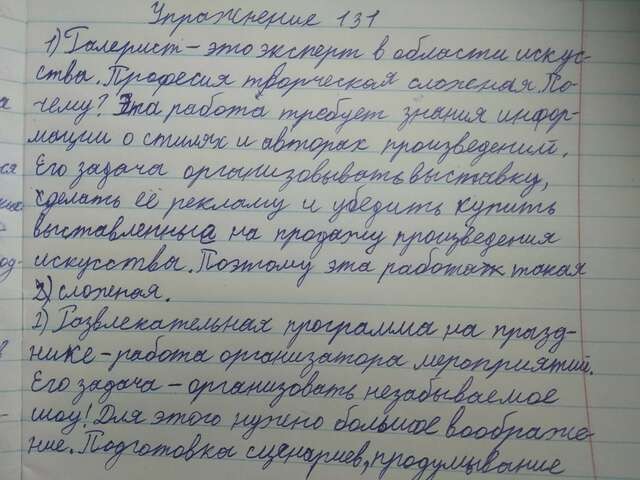 Упражнение 131
1) Галерист - это эксперт в области искус-
ства. Професия творческая сложеная. По-
чему? Эта работа требует знания инфор-
мации о стилях и авторах произведений.
Его задача организовывать выставку,
сделать её рекламу и убедить купить
выставленные на продажу произведения
искусства. Поэтому эта работа такая
2) сложеная.
2) Развлекательная программа на празд-
нике - работа организатора мероприятий.
Его задача - организовать незабываемое
шоу! Для этого нужно большое воображе-
ние. Подготовка сценариев, продумывание